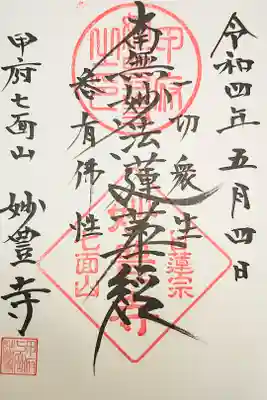 令和四年五月四日
一切衆生
南無妙法蓮華経
悉有佛性
甲府七面山 妙豊寺
日蓮宗
七面山